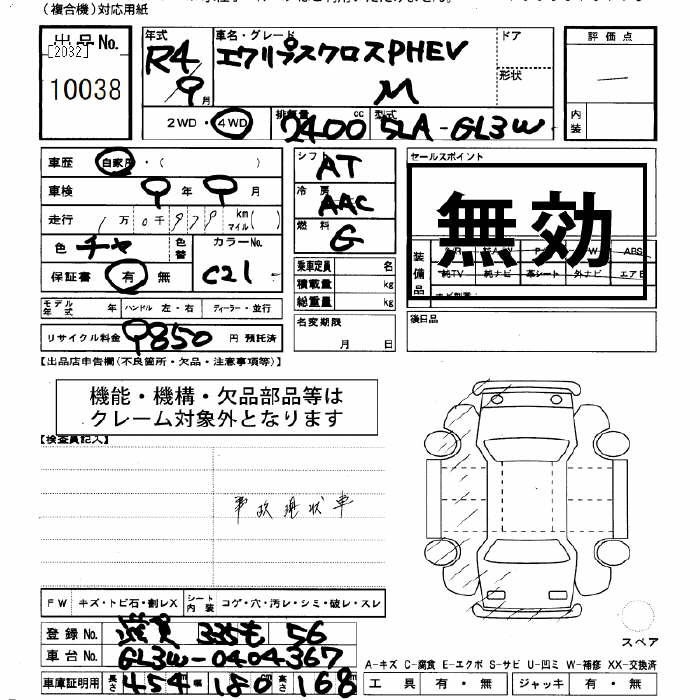 (複合機)対応用紙
出品No.
[2032]
10038
年式 車名・グレード ドア 評価点
R4 エクリプスクロスPHEV
9月 M 形状
2WD・4WD 排気量 cc 型式 内装
2400 5LA-GL3W
車歴 自家用・( )
シフト AT
セールスポイント
車検 9年9月
冷房 AAC
無効
走行 1万0千979km マイル( )
燃料 G
色 チャ 色替 カラーNo. C21
保証書 有 無
装備品
ABS
純TV 純ナビ 革シート 外ナビ エアB
乗車定員 名
積載量 kg
総重量 kg
モデル年式 年 ハンドル 左・右 ディーラー・並行
名変期限 月 日
後日品
リサイクル料金 9850 円 預託済
【出品店申告欄(不良箇所・欠品・注意事項等)】
機能・機構・欠品部品等は
クレーム対象外となります
【検査員記入】
事故現状車
FW キズ・トビ石・割レX シート内装 コゲ・穴・汚レ・シミ・破レ・スレ
登録No. 滋賀 335も 56
車台No. GL3W-0404367
車庫証明用 長さ 454 幅 180 高さ 168
スペア
A-キズ C-腐食 E-エクボ S-サビ U-凹ミ W-補修 XX-交換済
工具 有・無 ジャッキ 有・無